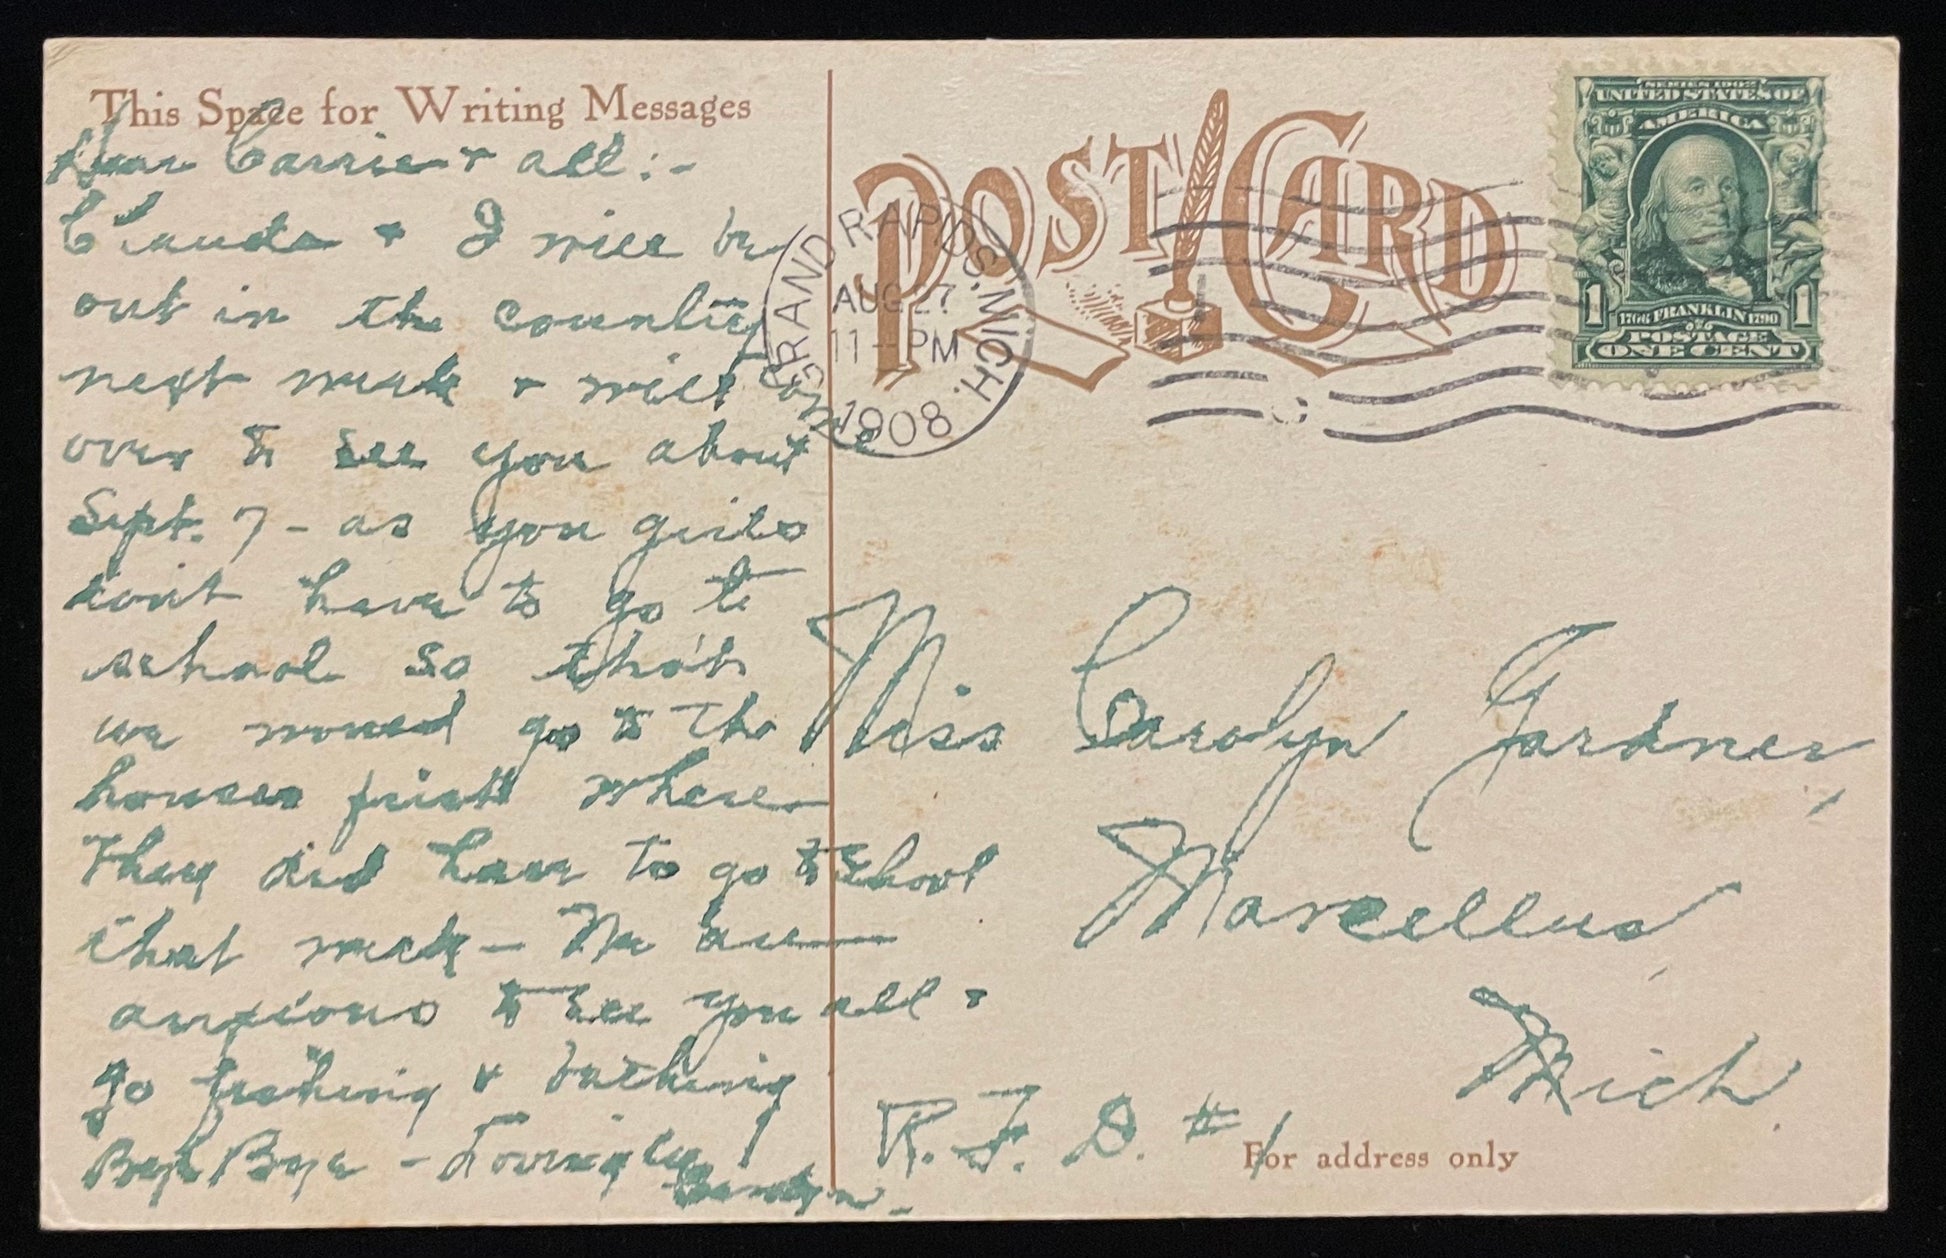 This Space for Writing Messages
Dear Carrie & all:-
Claude & I will be
out in the country
next week & will come
over to see you about
Sept. 7 - as you girls
don't have to go to
school so tho't
we would go to the
houses first where
They did have to go to school
that week - We are
anxious to see you all &
go fishing & bathing
Bye Bye - Lovingly
Carolyn.
POST CARD
GRAND RAPIDS. MICH.
AUG 27
11 - PM
1908
SERIES 1902
UNITED STATES OF
AMERICA
1706 FRANKLIN 1790
1 1
POSTAGE
ONE CENT
Miss Carolyn Gardner,
Marcellus
Mich.
R.F.D. #1
For address only